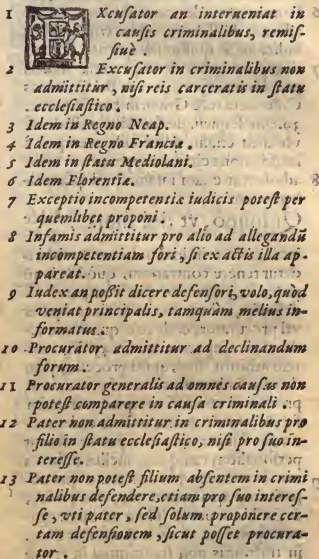 1 EXcusator an interueniat in
causis criminalibus, remis-
siuè.
2 Excusator in criminalibus non
admittitur, nisi reis carceratis in statu
ecclesiastico.
3 Idem in Regno Neap.
4 Idem in Regno Franciæ.
5 Idem in statu Mediolani.
6 Idem Florentiæ.
7 Exceptio incompetentiæ iudicis potest per
quemlibet proponi.
8 Infamis admittitur pro alio ad allegandũ
incompetentiam fori, si ex actis illa ap-
pareat.
9 Iudex an possit dicere defensori, volo, quòd
veniat principalis, tamquàm melius in-
formatus.
10 Procurator admittitur ad declinandum
forum.
11 Procurator generalis ad omnes causas non
potest comparere in causa criminali.
12 Pater non admittitur in criminalibus pro
filio in statu ecclesiastico, nisi pro suo in-
teresse.
13 Pater non potest filium absentem in crimi
nalibus defendere, etiam pro suo interes-
se, vti pater, sed solum proponere cer-
tam defensionem, sicut posset procura-
tor.